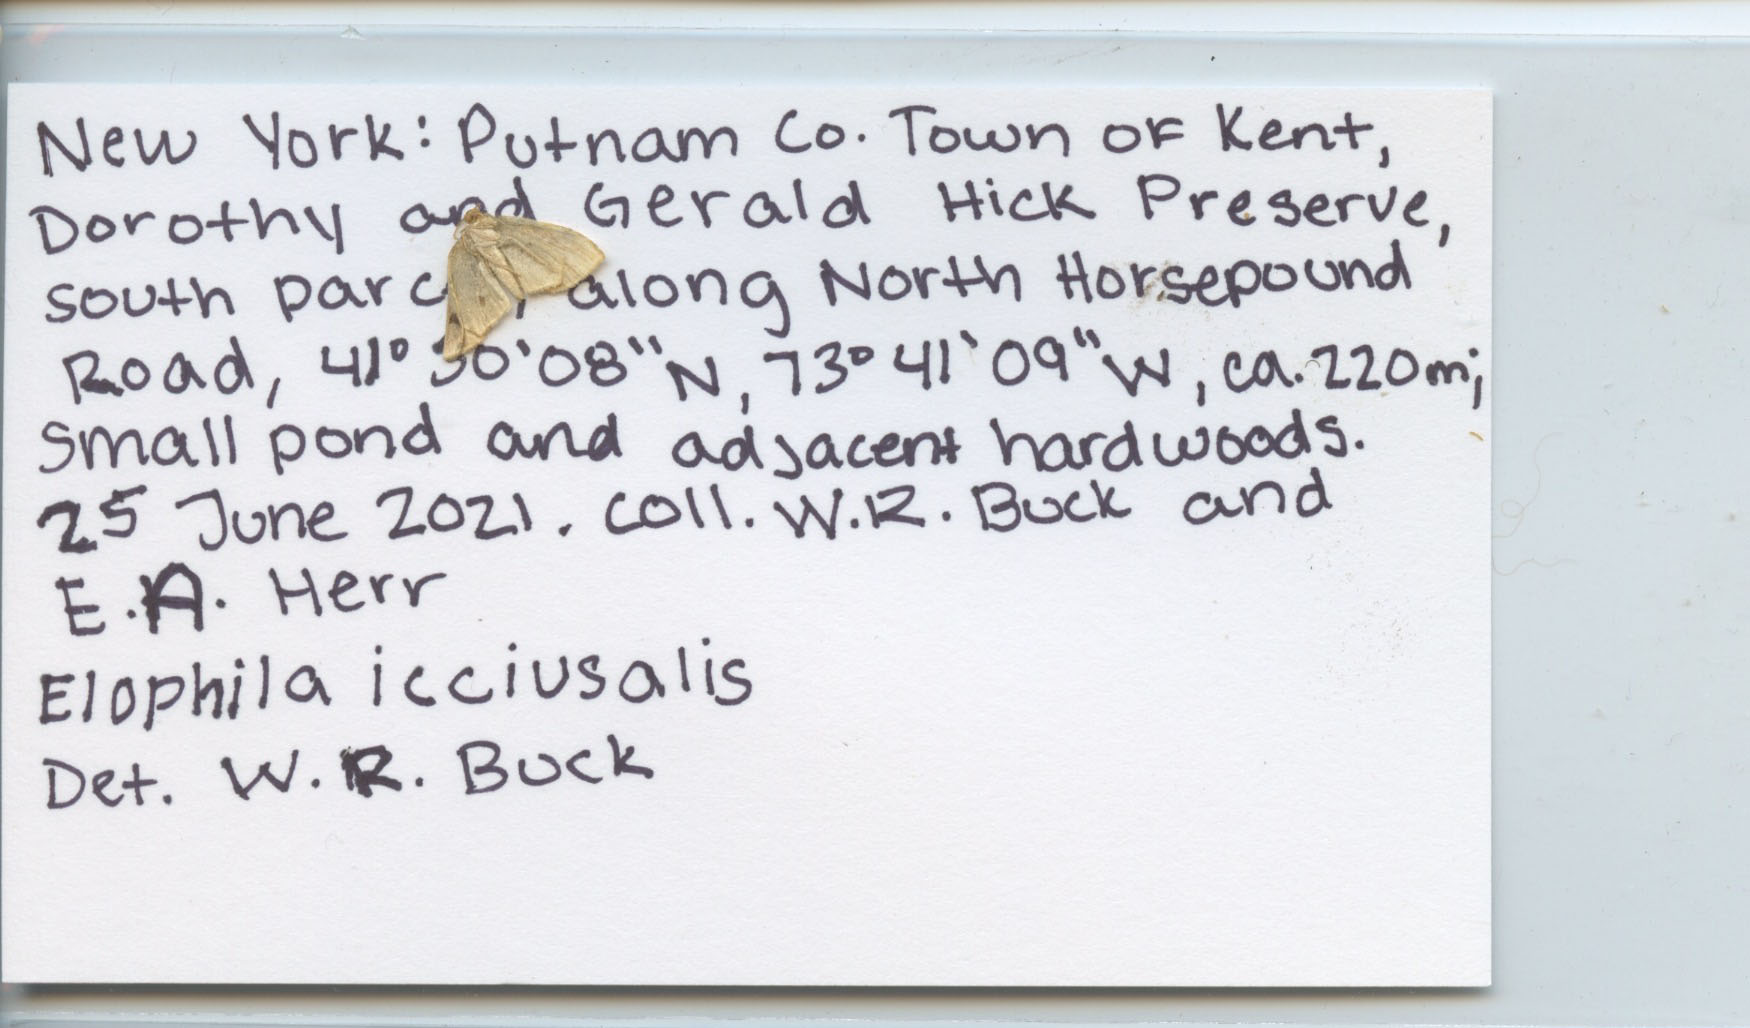 New York: Putnam Co. Town of Kent,
Dorothy and Gerald Hick Preserve,
south along North Horsepound
Road, 41° 30'08"N, 73° 41'09"W, ca. 220m;
small pond and adjacent hardwoods.
25 June 2021. coll. W.R. Buck and
E.A. Herr
Elophila icciusalis
Det. W.R. Buck